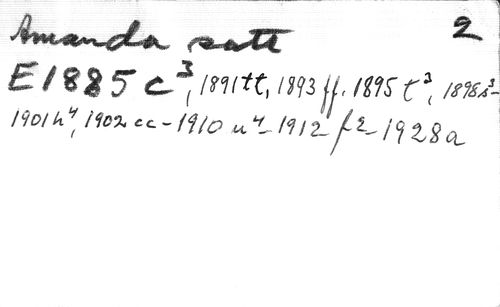 Amanda satt 2
E 1885 c³, 1891 tt, 1893 ff. 1895 t³, 1898 s³-
1901 h⁴, 1902 cc - 1910 u⁴ - 1912 f2 - 1928 a